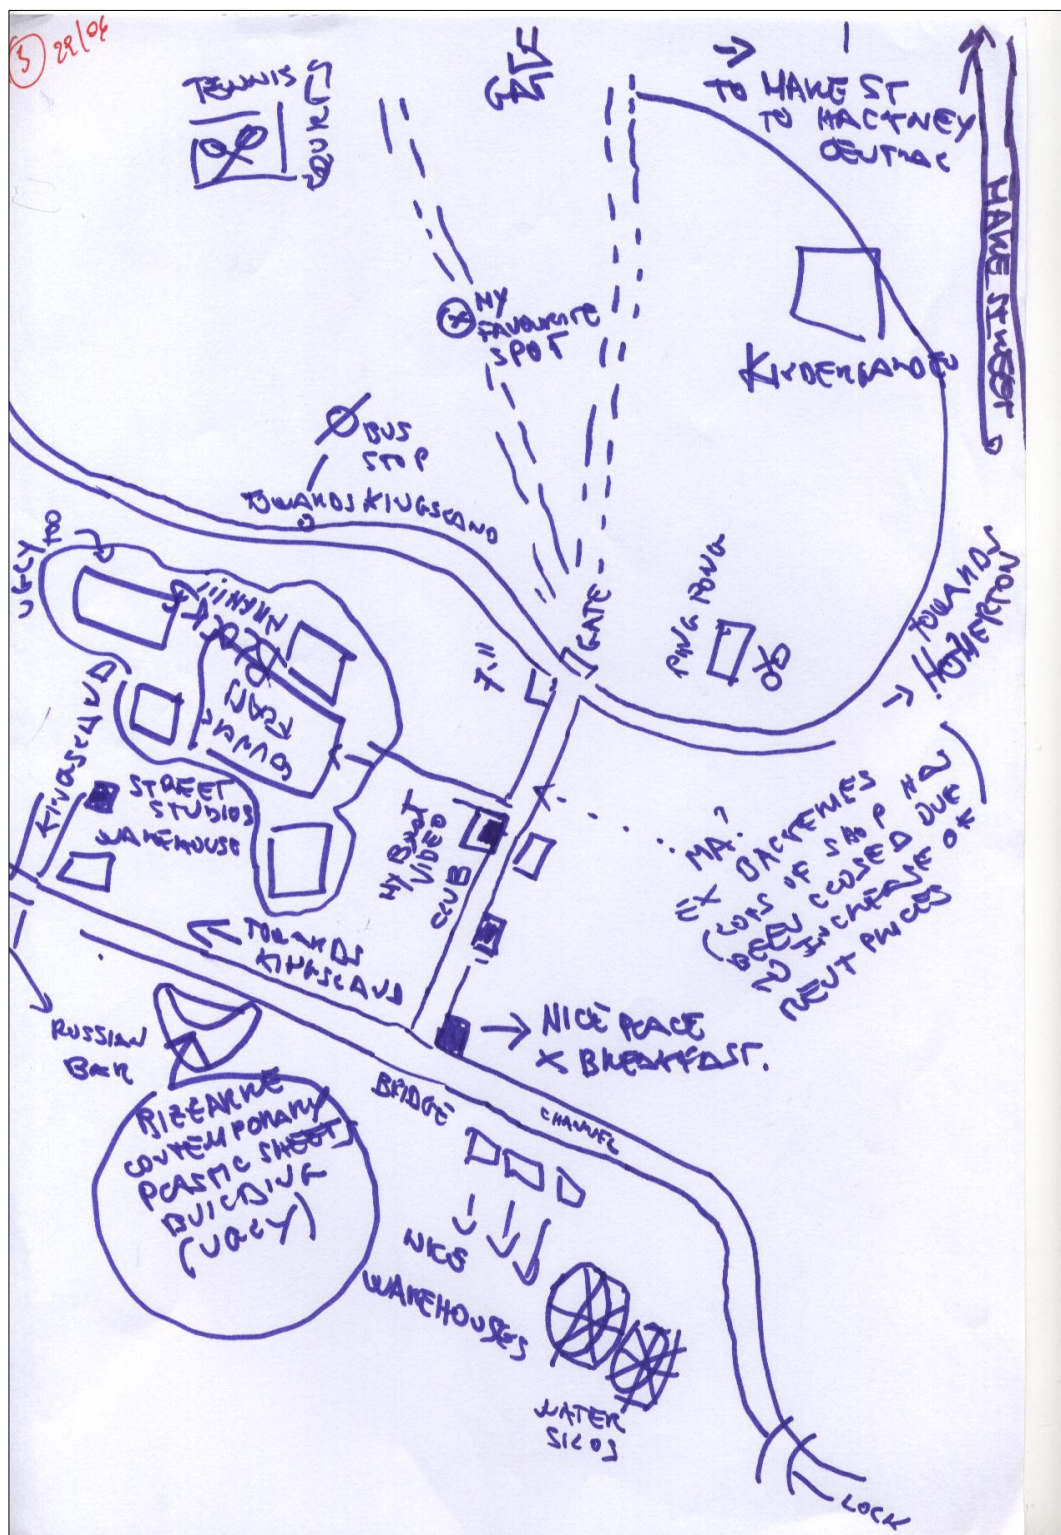 3
29/06
TENNIS
COURTS
GAT
TO MARE ST
TO HACKNEY
CENTRAL
MARE STREET
MY
FAVOURITE
SPOT
KINDERGARDEN
BUS
STOP
TOWARDS KINGSLAND
UGLY
TOWARDS
HOMERTON
GATE
PING PONG
7.11
KINGSLAND
STREET
STUDIOS
WAREHOUSE
MY BEST
VIDEO
CLUB
EX BACKERIES
(LOTS OF SHOP HAS
BEEN CLOSED DUE
TO INCREASE OF
RENT PRICES
TOWARDS
KINGSLAND
NICE PLACE
X BREAKFAST.
RUSSIAN
BAR
BRIDGE
CHANNEL
BIZEARRE
CONTEMPORARY
PLASTIC SHEET
BUILDING
(UGLY)
NICE
WAREHOUSES
WATER
SILOS
LOCK